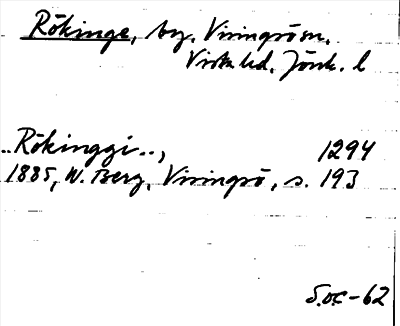 Rökinge, by, Visingsö sn,
Vista hd. Jönk. l
..Rökinggi.., 1294
1885, W. Berg, Visingsö, s. 193
S.O.C-62